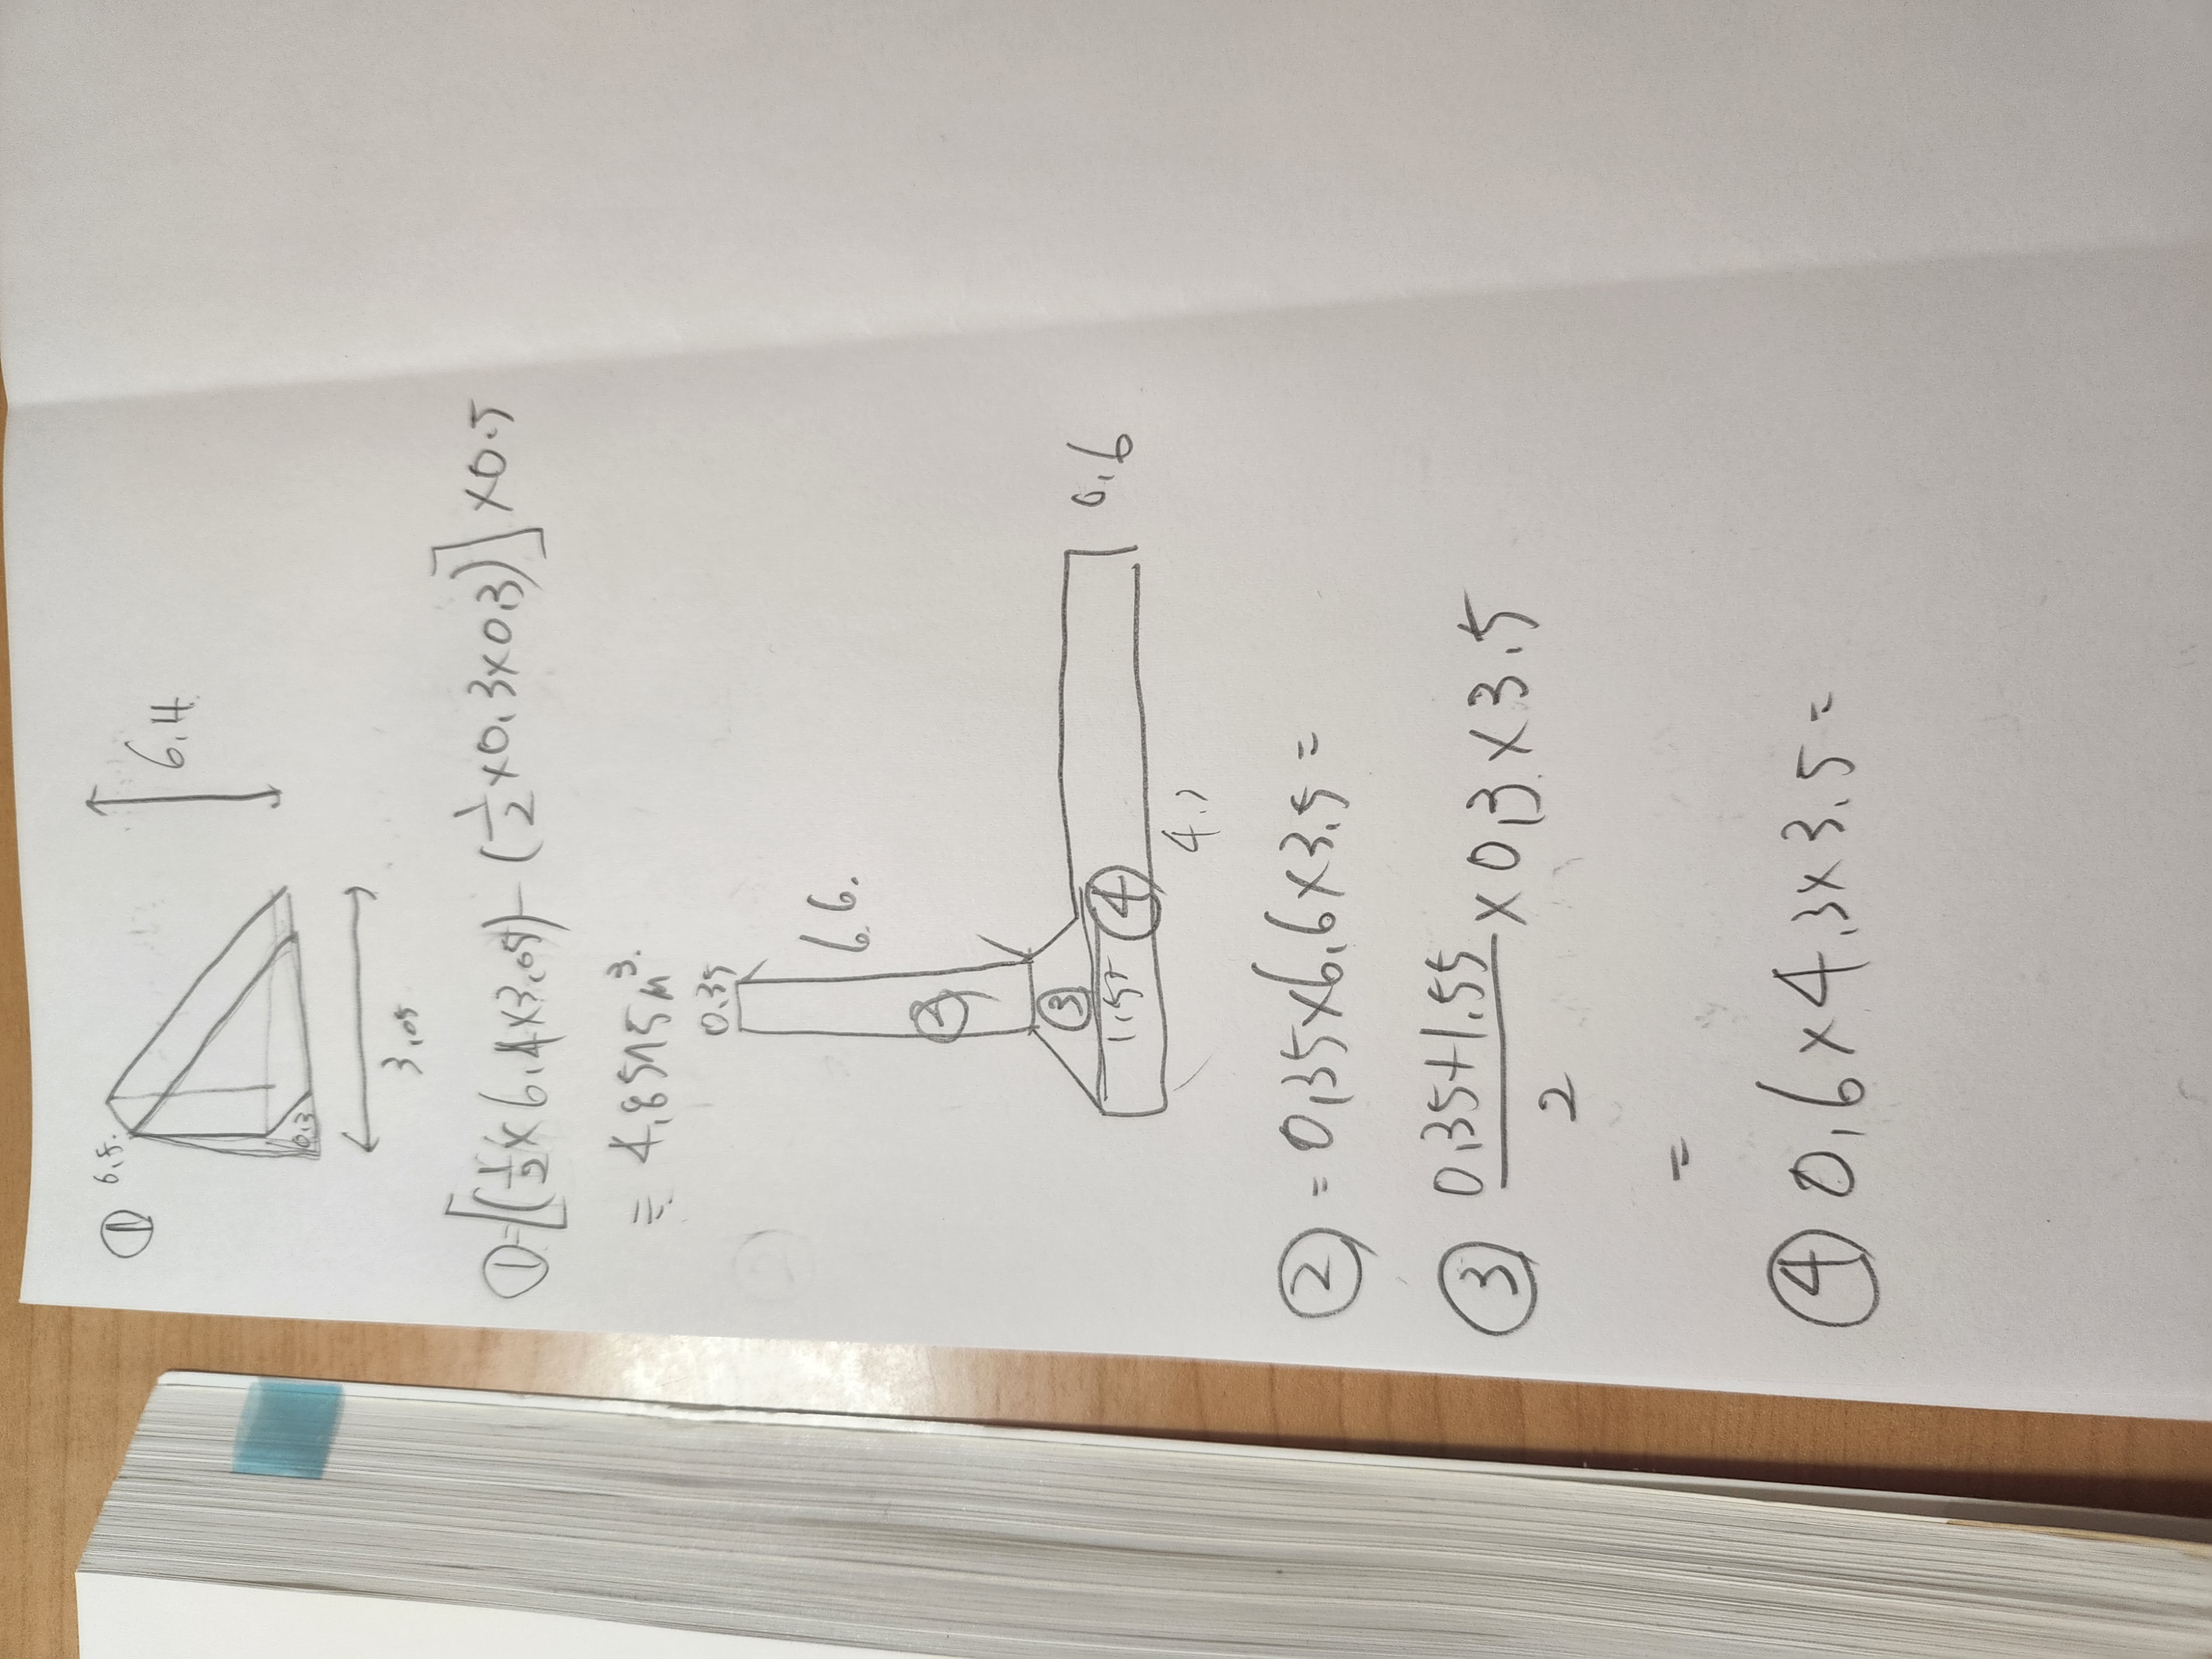 ① 0.5.
6.4
0.3
3.05
①=[(½×6.4×3.05)-(½×0.3×0.3)]×0.5
= 4.8575m³.
0.35
6.6.
②
③
1.55
④
0.6
②=0.35×6.6×3.5=
③ (0.35+1.55)/2 ×0.3×3.5
=
④ 0.6×4.3×3.5=